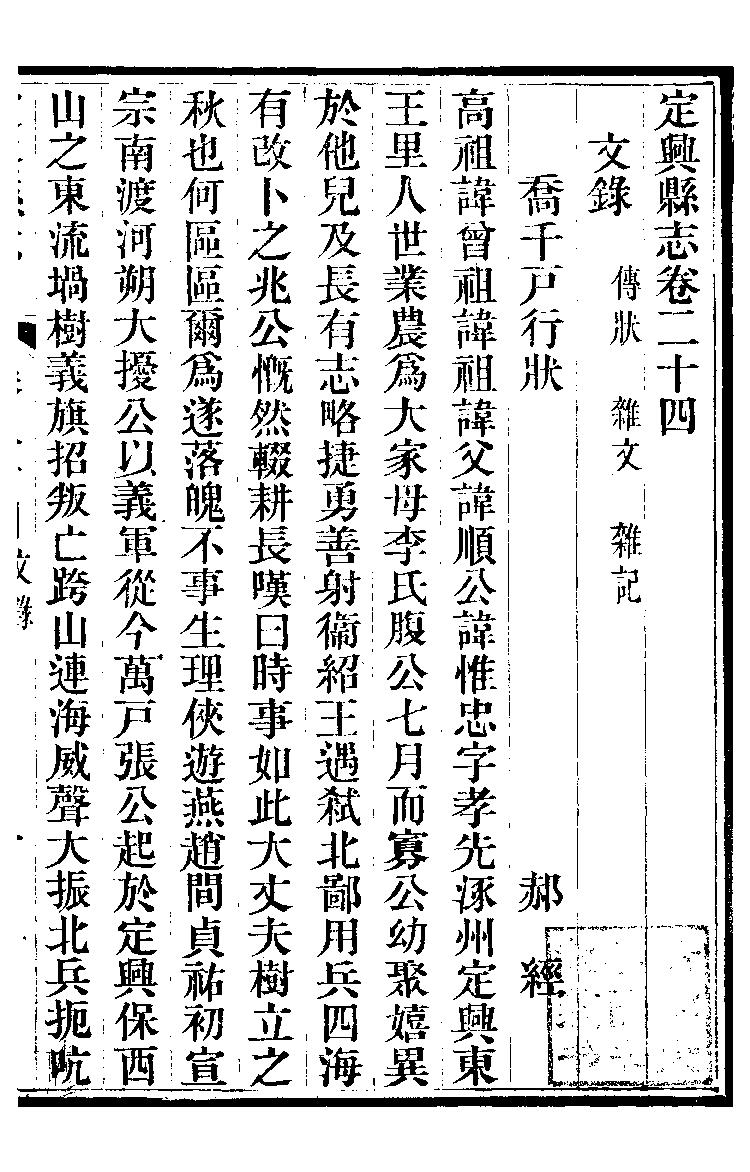 定興縣志卷二十四
文錄 傳狀 雜文 雜記
喬千戸行狀 郝經
高祖諱曾祖諱祖諱父諱順公諱惟忠字孝先涿州定興東
王里人世業農爲大家母李氏腹公七月而寡公幼聚嬉異
於他兒及長有志略捷勇善射衞紹王遇弑北鄙用兵四海
有改卜之兆公慨然輟耕長嘆曰時事如此大丈夫樹立之
秋也何區區爾爲遂落魄不事生理俠遊燕趙間貞祐初宣
宗南渡河朔大擾公以義軍從今萬戸張公起於定興保西
山之東流堝樹義旗招叛亡跨山連海威聲大振北兵扼吭
文錄